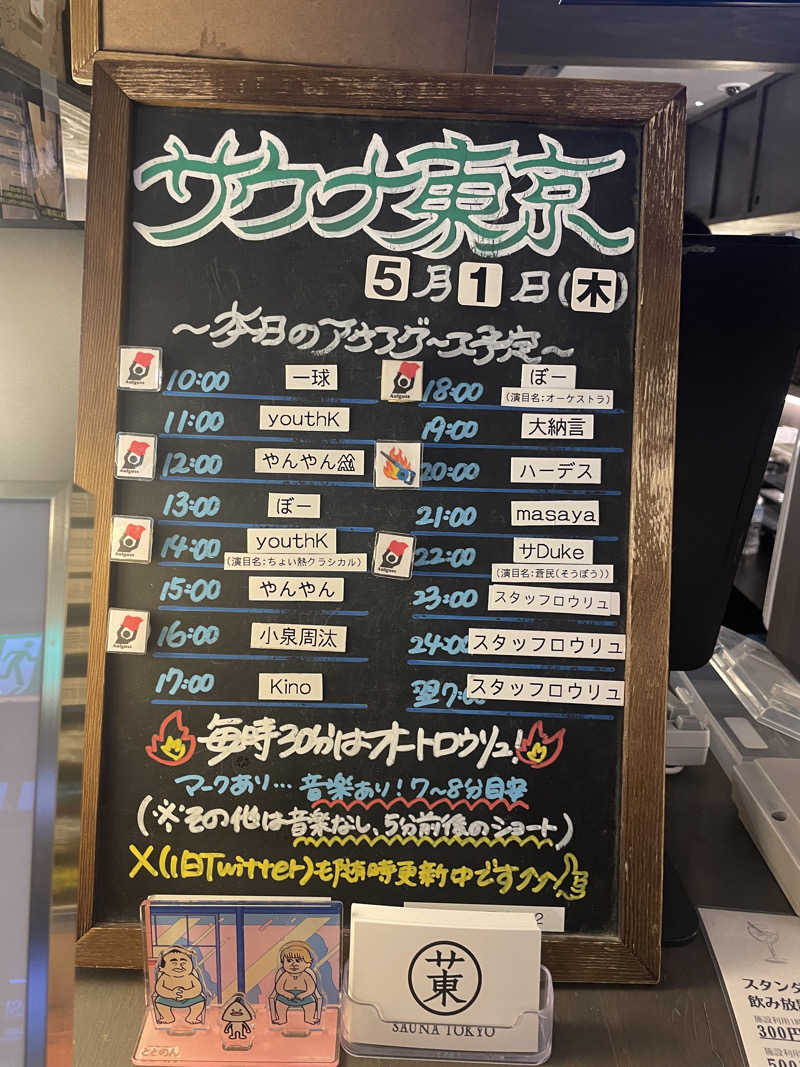 サウナ東京
5月1日(木)
～本日のアウフグース予定～
Aufguss 10:00 一球
11:00 youthK
Aufguss 12:00 やんやん
13:00 ぼー
Aufguss 14:00 youthK
(演目名:ちょい熱クラシカル)
15:00 やんやん
Aufguss 16:00 小泉周汰
17:00 Kino
Aufguss 18:00 ぼー
(演目名:オーケストラ)
19:00 大納言
20:00 ハーデス
21:00 masaya
Aufguss 22:00 サDuke
(演目名:蒼民(そうぼう))
23:00 スタッフロウリュ
24:00 スタッフロウリュ
翌7:00 スタッフロウリュ
毎時30分はオートロウリュ!
マークあり…音楽あり!7〜8分目安
(※その他は音楽なし、5分前後のショート)
X(旧Twitter)も随時更新中です⤴⤴
2
ととのん
サ東
SAUNA TOKYO
スタンダ
飲み放
施設利用1
300円
施設利用
500